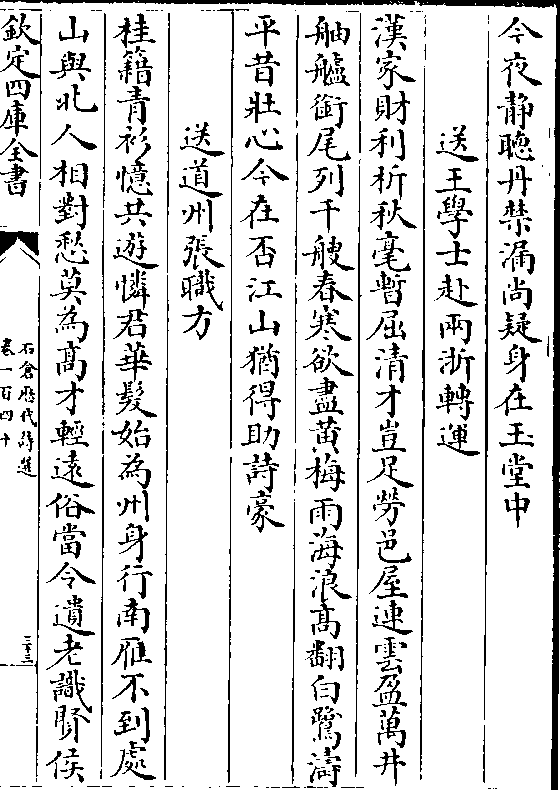 今夜静聽丹禁漏尚疑身在玉堂中
送王學士赴兩浙轉運
漢家財利析秋毫暫屈清才豈足勞邑屋連雲盈萬井
舳艫銜尾列千艘春寒欲盡黄梅雨海浪高翻白鷺濤
平昔壯心今在否江山猶得助詩豪
送道州張職方
桂籍青衫憶共遊憐君華髮始為州身行南雁不到處
山與北人相對愁莫為高才輕遠俗當令遺老識賢侯
欽定四庫全書
石倉歷代詩選
卷一百四十
三十三